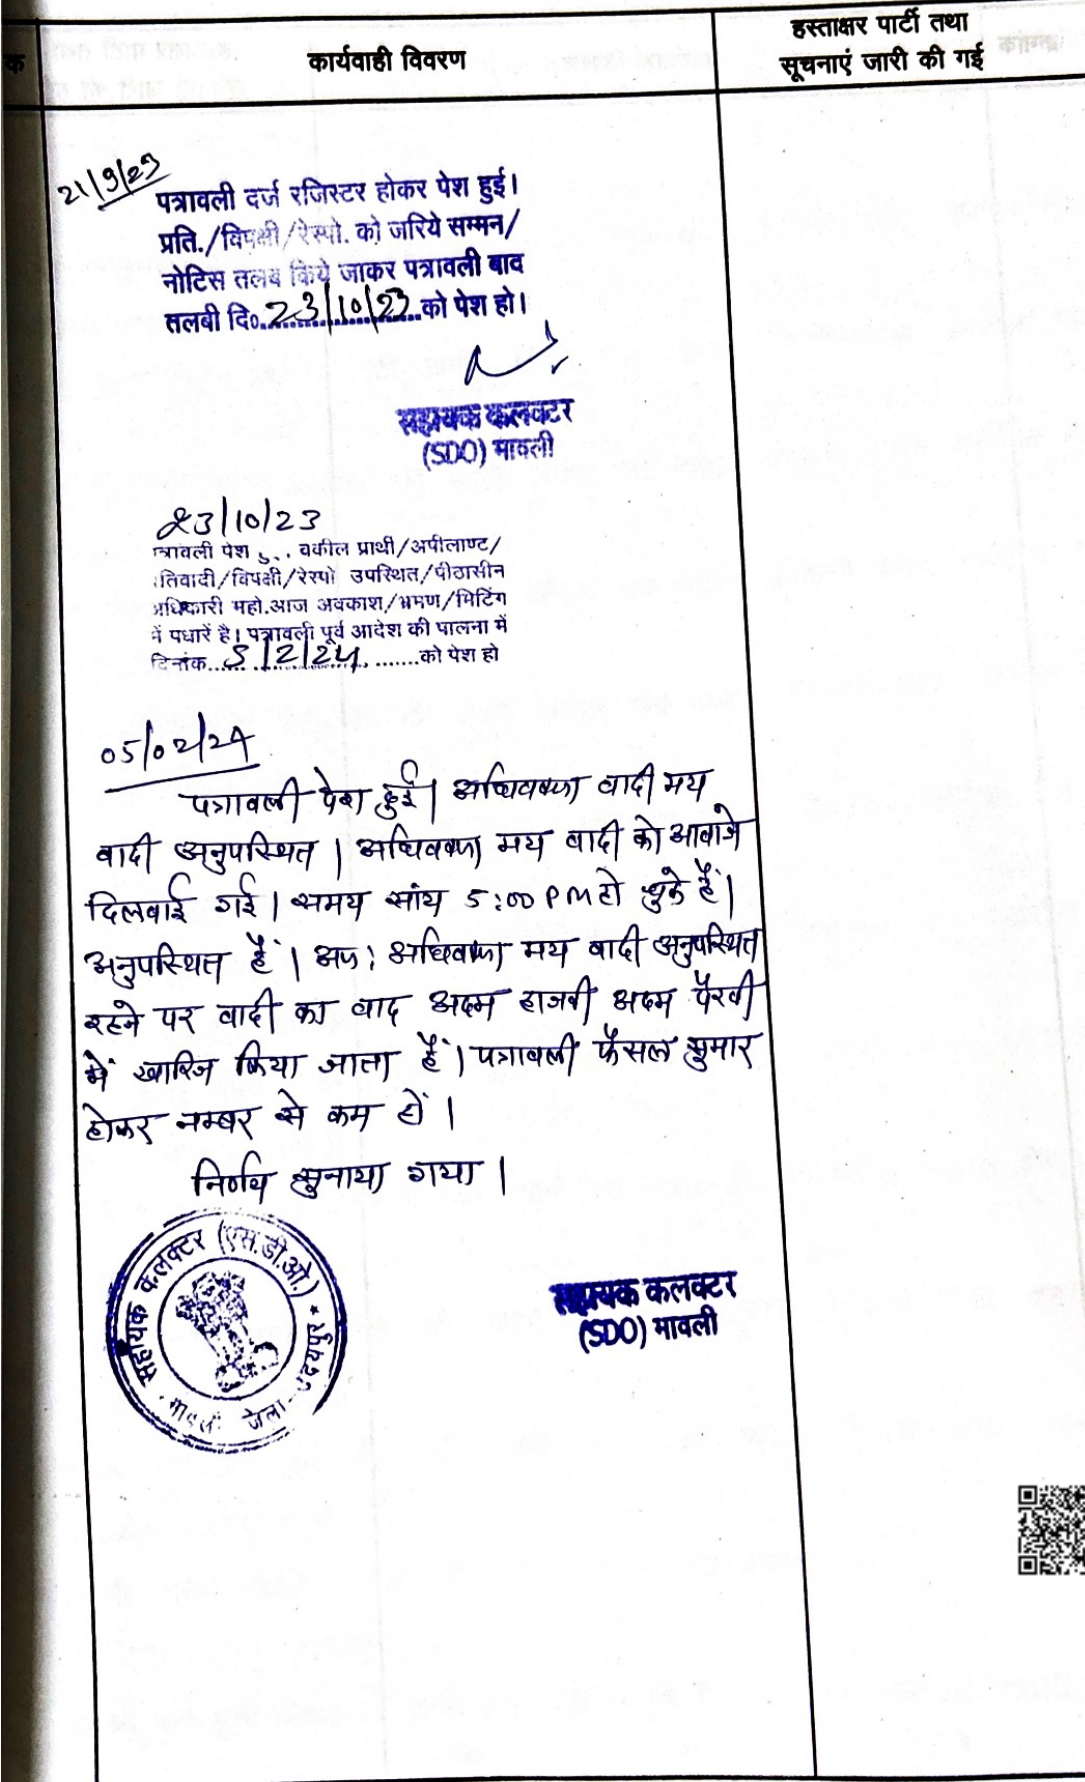 क
कार्यवाही विवरण
हस्ताक्षर पार्टी तथा
सूचनाएं जारी की गई
21/9/23
पत्रावली दर्ज रजिस्टर होकर पेश हुई।
प्रति./विपक्षी/रेस्पो. को जरिये सम्मन/
नोटिस तलब किये जाकर पत्रावली बाद
तलबी दि०..23/10/23..को पेश हो।
सहायक कलक्टर
(SDO) मावली
23/10/23
त्रावली पेश .. वकील प्रार्थी/अपीलाण्ट/
तिवादी/विपक्षी/रेस्पो उपस्थित/पीठासीन
अधिकारी महो.आज अवकाश/भ्रमण/मिटिंग
में पधारें है। पत्रावली पूर्व आदेश की पालना में
दिनांक...5/2/24.......को पेश हो
05/02/24
पत्रावली पेश हुई। अधिवक्ता वादी मय
वादी अनुपस्थित। अधिवक्ता मय वादी को आवाजे
दिलवाई गई। समय सांय 5:00 PM हो चुके हैं।
अनुपस्थित हैं। अतः अधिवक्ता मय वादी अनुपस्थित
रहने पर वादी का वाद अदम हाजरी अदम पैरवी
में खारिज किया जाता हैं। पत्रावली फैसल सुमार
होकर नम्बर से कम हों।
निर्णय सुनाया गया।
सहायक कलक्टर (एस.डी.ओ.) * मावली जिला-उदयपुर
सहायक कलक्टर
(SDO) मावली